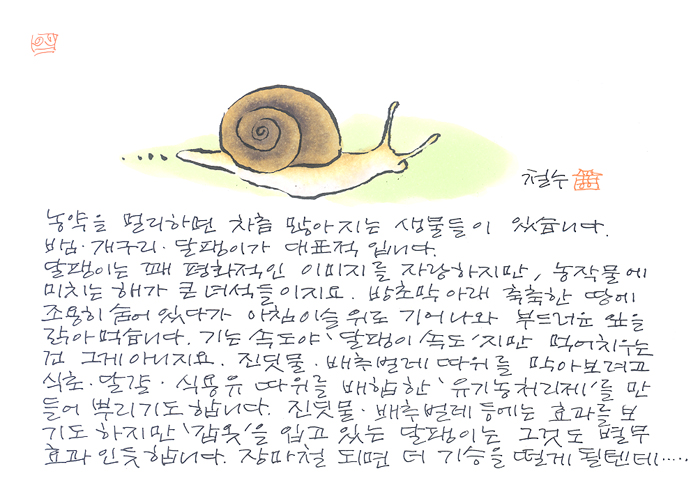 철수
농약을 멀리하면 차츰 많아지는 생물들이 있습니다.
뱀·개구리·달팽이가 대표적입니다.
달팽이는 꽤 평화적인 이미지를 자랑하지만, 농작물에
미치는 해가 큰 녀석들이지요. 방초막 아래 축축한 땅에
조용히 숨어 있다가 아침이슬 위로 기어나와 부드러운 잎을
갉아 먹습니다. 기는 속도야 '달팽이 속도'지만 먹어치우는
건 그게 아니지요. 진딧물·배추벌레 따위를 막아보려고
식초·달걀·식용유 따위를 배합한 '유기농처리제'를 만
들어 뿌리기도 합니다. 진딧물·배추벌레 등에는 효과를 보
기도 하지만 '갑옷'을 입고 있는 달팽이는 그것도 별무
효과인듯 합니다. 장마철 되면 더 기승을 떨게 될텐데.....